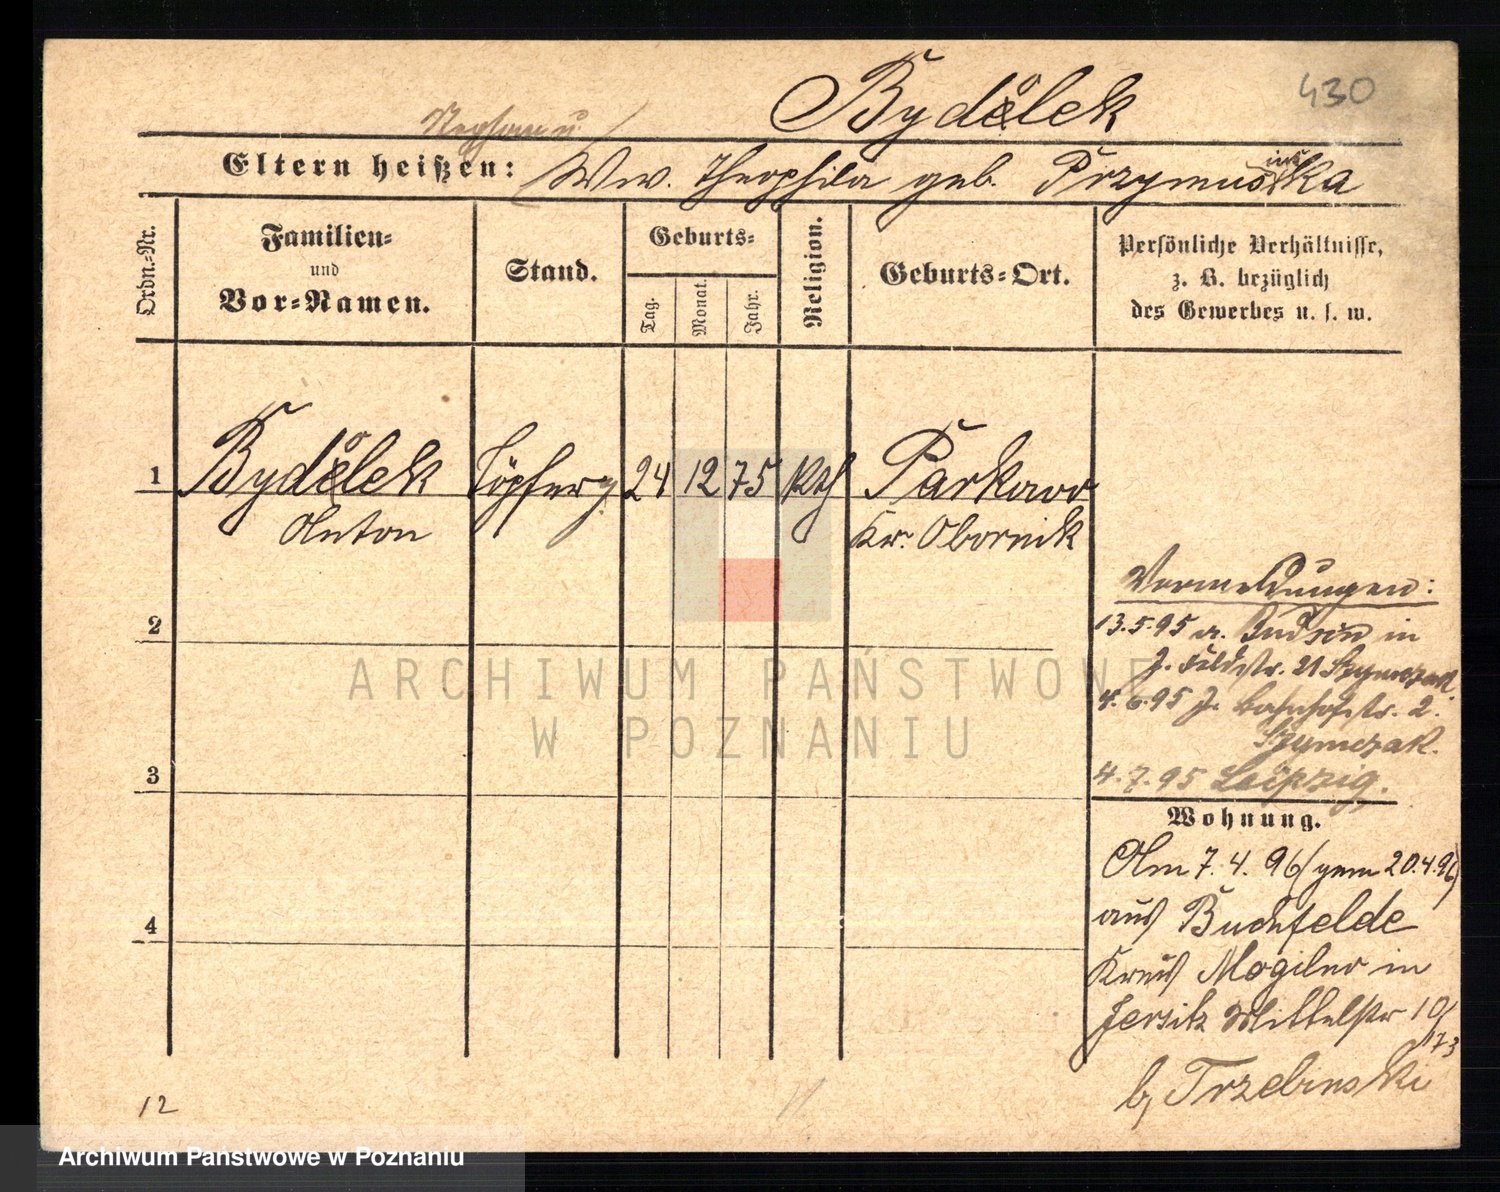 430
Bydolek
Eltern heißen: Ww. Theophila geb. Przymusińska
Ordn.-Nr.
Familien-
und
Vor-Namen.
Stand.
Geburts-
Tag.
Monat.
Jahr.
Religion.
Geburts-Ort.
Persönliche Verhältnisse,
z. B. bezüglich
des Gewerbes u. s. w.
1 Bydolek Töpferg 24 12 75 kth Parkowo
Anton Kr. Obornik
2
3
4
Vormeldungen:
13.5.95 a. in
J. Feldstr. 21 Szymczak
4.6.95 J. Bahnhofstr. 2.
Szymczak.
4.7.95 Leipzig.
Wohnung.
Am 7.4.96 (gem 20.4.96)
aus Buchfelde
Kreis Mogilno in
Jersitz Mittelstr 10/
173
b, Trzebinski
12
ARCHIWUM PAŃSTWOWE
W POZNANIU
Archiwum Państwowe w Poznaniu